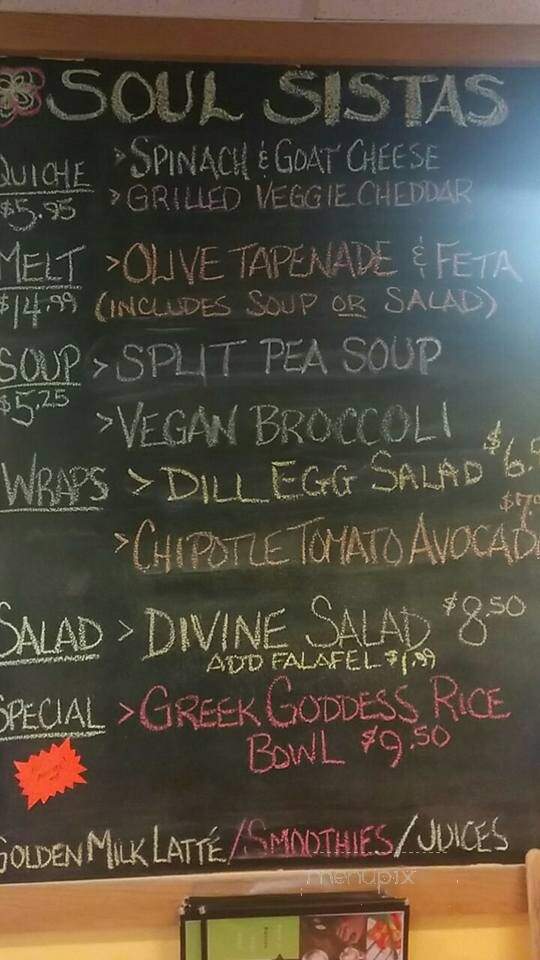 SOUL SISTAS
QUICHE >SPINACH & GOAT CHEESE
$5.95 >GRILLED VEGGIE CHEDDAR
MELT >OLIVE TAPENADE & FETA
$14.99 (INCLUDES SOUP OR SALAD)
SOUP >SPLIT PEA SOUP
$5.25
>VEGAN BROCCOLI
WRAPS >DILL EGG SALAD
>CHIPOTLE TOMATO AVOCADO
SALAD >DIVINE SALAD $8.50
ADD FALAFEL $1.99
SPECIAL >GREEK GODDESS RICE
BOWL $9.50
GOLDEN MILK LATTÉ/SMOOTHIES/JUICES
menupix